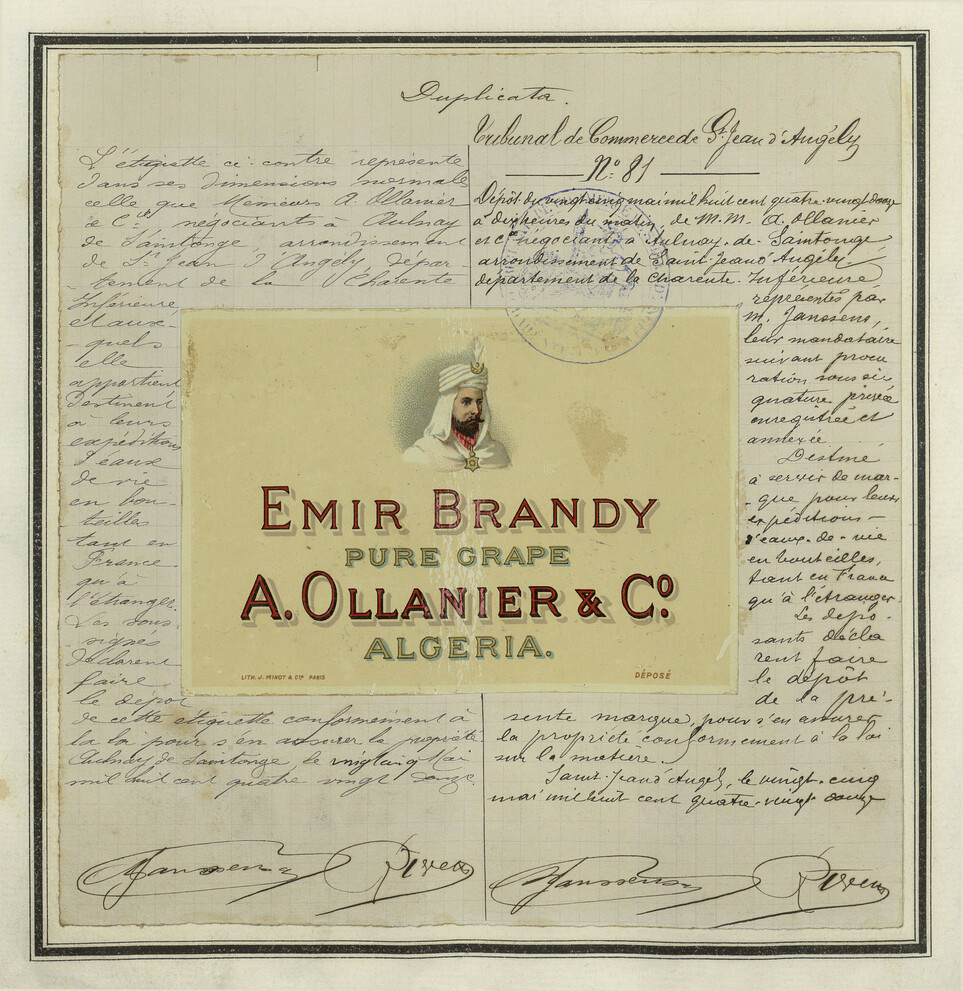 Duplicata.
L'étiquette ci-contre représente
dans ses dimensions normale
celle que Messieurs A. Ollanier
& Cie, négociants à Aulnay
de Saintonge, arrondissement
de St Jean d'Angély dépar-
tement de la Charente
Inférieure,
et aux-
quels
elle
appartient
Destinent
à leurs
expéditions
d'eaux
de vie
en bou-
teilles
tant en
France
qu'à
l'étranger.
Les sous-
signés
déclarent
faire
le dépôt
de cette étiquette conformément à
la loi pour s'en assurer la propriété.
Aulnay de Saintonge, le vingt cinq Mai
mil huit cent quatre vingt douze.
Janssens
Tribunal de Commerce de St Jean d'Angély
No. 81
Dépôt du vingt cinq mai mil huit cent quatre-vingt-douze
à dix heures du matin, de M.M. A. Ollanier
et Cie négociant à Aulnay-de-Saintonge
arrondissement de Saint-Jean d'Angély
département de la Charente-Inférieure
représentés par
M. Janssens,
leur mandataire
suivant procu
ration sous si-
gnature privée
enregistrée et
annexée
Destiné
à servir de mar-
-que pour leurs
expéditions-
d'eaux-de-vie
en bouteilles,
tant en France
qu'à l'étranger.
Les dépo-
sants décla
rent faire
le dépôt
de la pré-
sente marque, pour s'en assurer
la propriété conformément à la loi
sur la matière.
Saint-Jean d'Angély, le vingt-cinq
mai mil huit cent quatre-vingt douze
Janssens
EMIR BRANDY
PURE GRAPE
A. OLLANIER & Co
ALGERIA.
LITH. J. MINOT & Cie PARIS
DÉPOSÉ